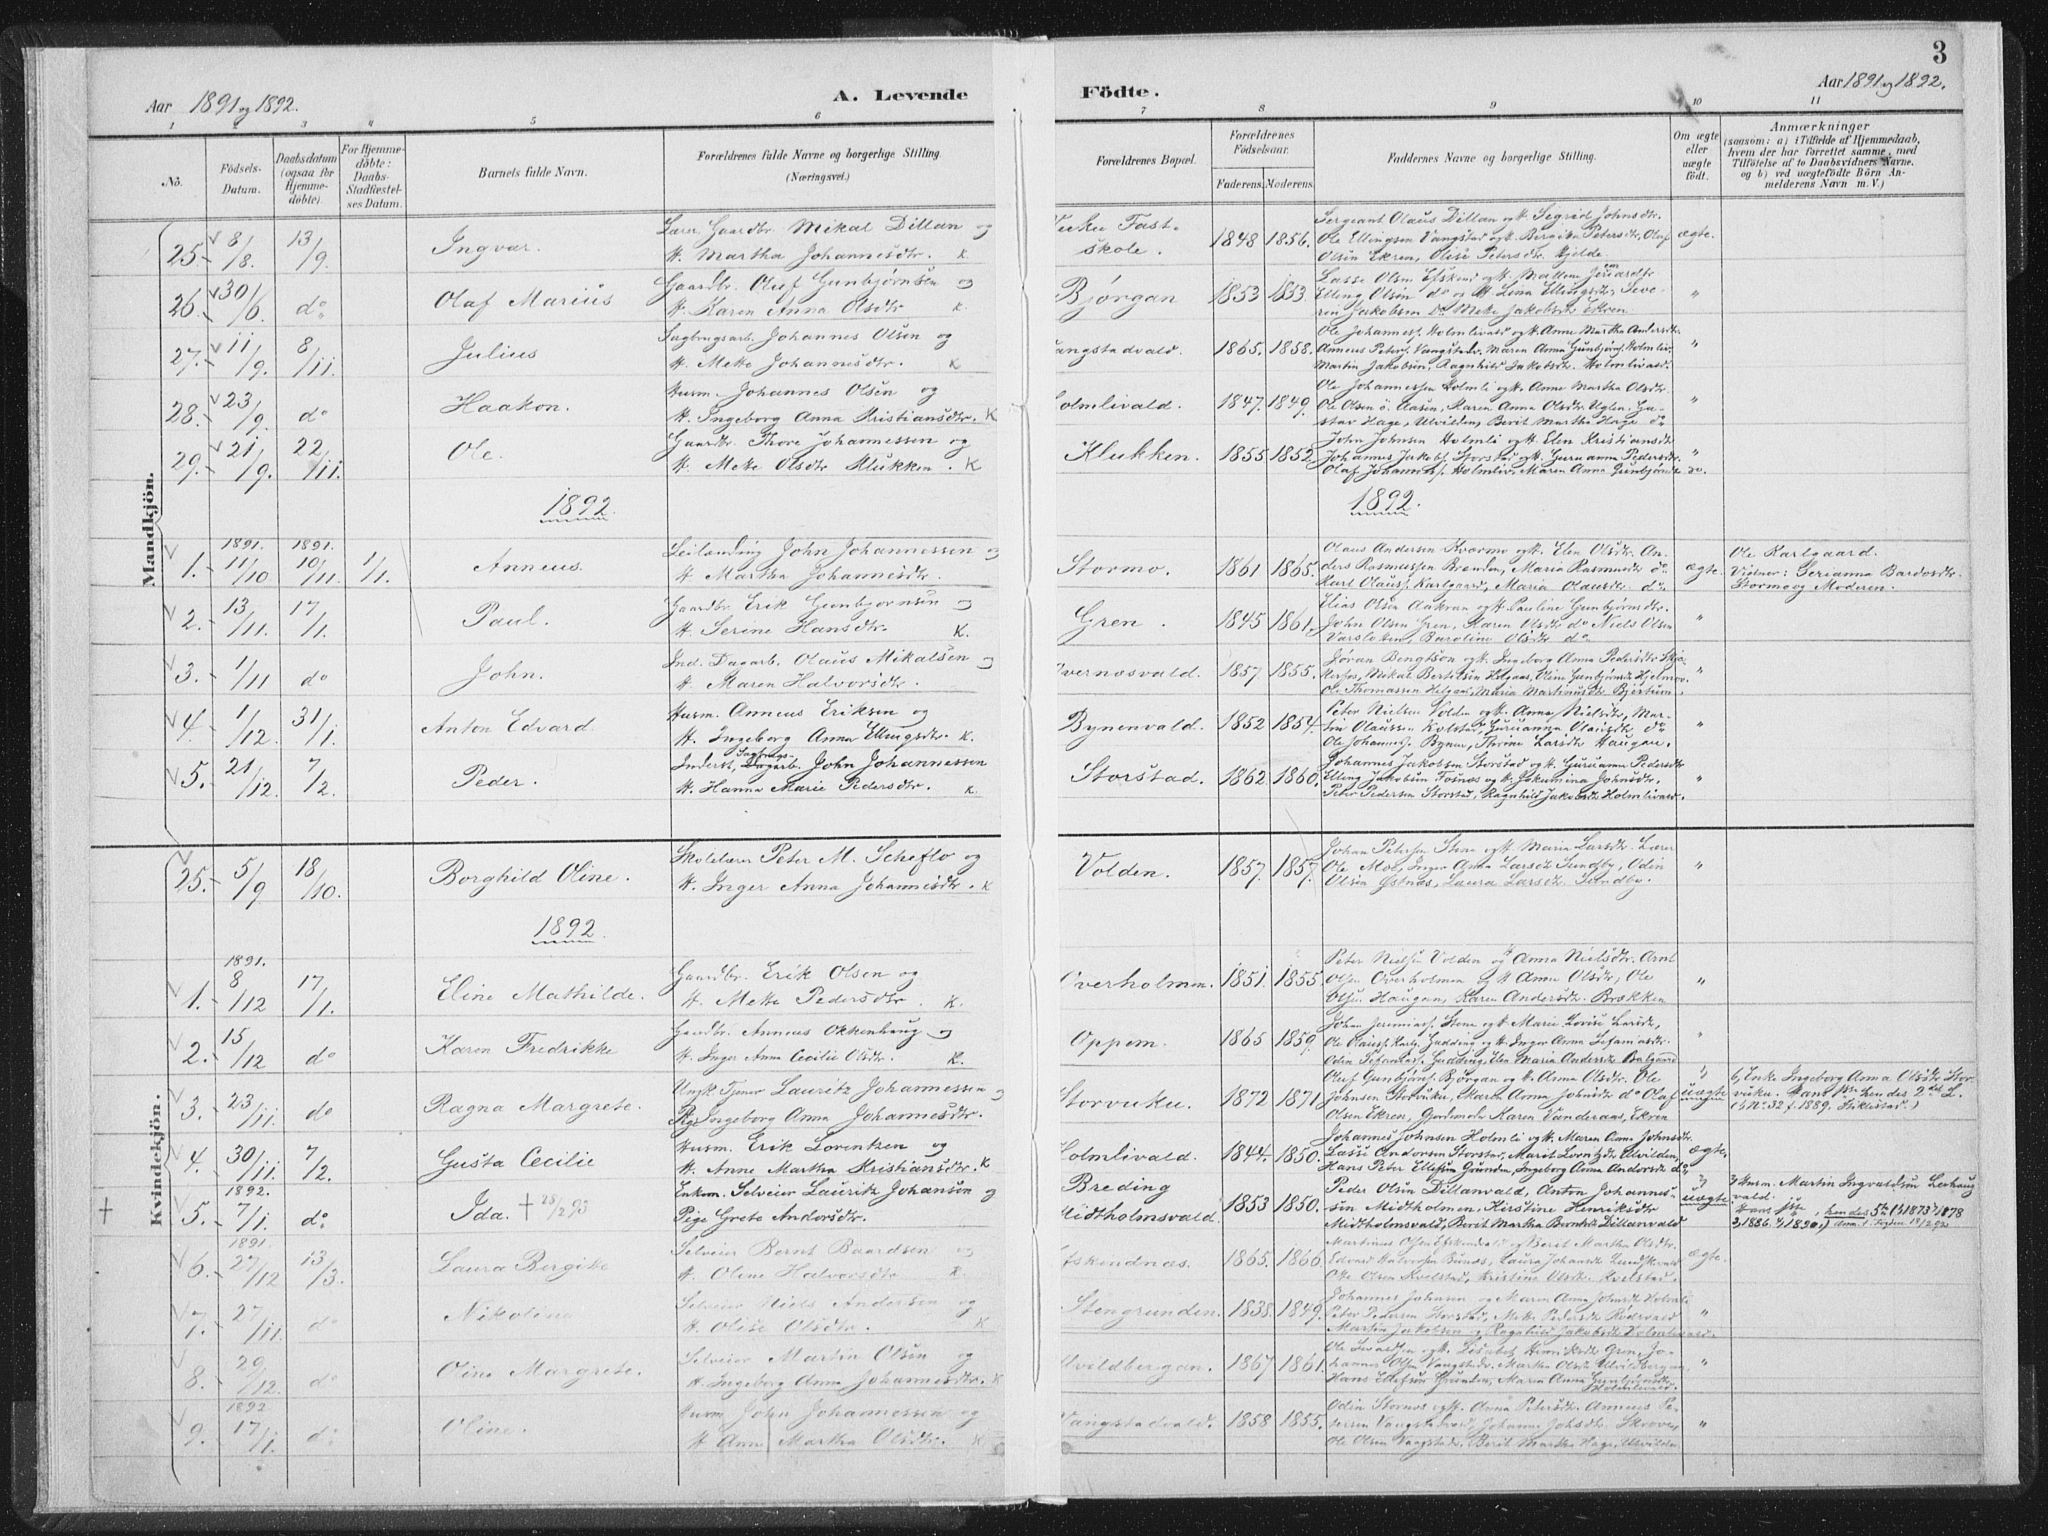 3
Aar 1891 og 1892.
A. Levende
Födte.
Aar 1891 og 1892.
1 2 3 4 5 6 7 8 9 10 11
No.
Födsels-Datum.
Daabsdatum (ogsaa for Hjemme-döbte).
For Hjemme-döbte: Daabs-Stadfæstel-ses Datum.
Barnets fulde Navn.
Forældrenes fulde Navne og borgerlige Stilling.
(Næringsvei.)
Forældrenes Bopæl.
Forældrenes Födselsaar.
Faderens. Moderens.
Faddernes Navne og borgerlige Stilling.
Om ægte eller uægte födt.
Anmærkninger
(saasom: a) i Tilfælde af Hjemmedaab, hvem der har forrettet samme, med Tilföielse af to Daabsvidners Navne, og b) ved uægtefödte Börn An-melderens Navn m. V.)
Mandkjön.
25. 8/8. 13/9 Ingvar. Lærer, Gaardbr. Mikal Dillan og
H. Martha Johannesdtr. K.
Fast-skole. 1848 1856. Sergeant Olaus Dillan og H. Sigrid Johnsdtr.
Ole Ellingsen Vangstad og H. Bergitta Petersdtr, Olaf
Olsen Ekren, Olise Petersdtr Hjelde ægte.
26. 30/6. do Olaf Marius Gaardbr. Oluf Gunbjørnsen og
H. Karen Anna Olsdtr K
Bjørgan 1853 1853. Lasse Olsen
Elling Olsen do og H. Lina Ellingsdtr,
Jakobsen do Mette Jakobsdtr Ekren "
27. 11/9. 8/11. Julius Sagbrugsarb. Johannes Olsen og
H. Mette Johannesdtr. K
Vangstadvald. 1865. 1858. Ole Johanness. Holmlivald og H. Anne Martha Andersdtr.
Anneus Peters. Vangstadv, Maren Anna Gunbjørnsd. Holmliv.
Martin Jakobsen, Ragnhild Jakobsdtr. Holmlivald. "
28. 23/9. do Haakon. Husm. Johannes Olsen og
H. Ingeborg Anna Kristiansdtr. K
Holmlivald. 1847. 1849. Ole Johannessen Holmli og H. Anne Martha Olsdtr.
Ole Olsen ö. Aasen, Karen Anna Olsdtr Uglen. Gu-
stav Hage, Ulvilden, Berit Martha Hage do "
29. 21/9. 22/11. Ole. Gaardbr. Thore Johannessen og
H. Mette Olsdtr Klukken. K
Klukken. 1855 1852. John Johnsen Holmli og H. Elen Kristiansdtr
Johannes Jakobs. Storstad og H. Guruanna Pedersdtr.
Olaf Johanness. Holmliv, Maren Anna Gunbjørnsdtr do. "
1892. 1892.
1. 1891. 11/10 1891. 10/11. 1/1. Anneus. Leilænding John Johannessen og
H. Martha Johannesdtr.
Stormo. 1861 1865. Olaus Andersen Kvormo og H. Elen Olsdtr. An-
ders Rasmussen Brenden, Maria Rasmusdtr do
Karl Olauss. Karlgaard, Maria Olausdtr do ægte. Ole Karlgaard.
Vidner: Serianna Bardosdtr.
Stormo og Moderen.
2. 13/11. 17/1. Paul. Gaardbr. Erik Gunbjørnsen og
H. Serine Hansdtr. K.
Gren. 1845 1861. Elias Olsen Aakran og H. Pauline Gunbjørnsdtr.
John Olsen Gren, Karen Olsdtr do Niels Olsen
Varsloten, Baroline Olsdtr do "
3. 1/11 do John. Ind. Dagarb. Olaus Mikalsen og
H. Maren Halvorsdtr.
1857 1855. Jøran Bengtson og H. Ingeborg Anna Pedersdtr
Mikal Bertilsen Helgaas, Oline Gunbjørnsdtr Hjelmov.
Ole Thomassen Helgaas, Maria Martinusdtr Bjertum. "
4 1/12. 31/1. Anton Edvard. Husm. Anneus Eriksen og
H. Ingeborg Anna Ellingsdtr. K.
Bynenvald. 1852 1854. Peter Nielsen Volden og H. Anna Nielsdtr, Mar-
tin Olaussen Kolstad, Guruanna Olausdtr do
Ole Johanness. Bynen, Larsdtr Haugan. "
5. 21/12. 7/2. Peder. Inderst, Sagbrugs-Dagarb. John Johannessen
H. Hanna Marie Pedersdtr. K.
Storstad. 1862. 1860. Johannes Jakobsen Storstad og H. Guruanna Pedersdtr
Elling Jakobsen Tosnes og H. Jakumina Johnsdtr.
Peter Pedersen Storstad, Ragnhild Jakobsdtr Holmlivald. "
Kvindekjön.
25. 5/9 18/10. Borghild Oline. Skolelærer Peter M. Scheflo og
H. Inger Anna Johannesdtr. K
Volden. 1857. 1857. Johan Petersen Stene og H. Maria Larsdt. Lærer
Ole Moe, Inger Anna Larsdt Sundby, Odin
Olsen Østnes, Laura Larsdt. Sundby. "
1892
1. 1891. 8/12 17/1. Eline Mathilde. Gaardbr. Erik Olsen og
H. Mette Pedersdtr. K.
Overholmen. 1851. 1855. Peter Nielsen Volden og H Anna Nielsdtr. Arnt
Olsen Overholmen og H Anna Olsdtr, Ole
Olsen Haugan, Karen Andersdt. Brækken "
2. 15/12 do Karen Fredrikke Gaardbr. Anneus Okkenhaug og
H. Inger Anna Cecilie Olsdtr. K.
Oppem. 1865 1859. Johan Jeremiass. Stene og H. Marie Lovise Larsdt,
Ole Olauss. Karlg. Hudding og H. Inger Anna
Odin Hudding, Elen Maria Andersdt "
3. 23/11. do Ragna Margrete. Ungk. Tjener Lauritz Johannessen og
Pg. Ingeborg Anna Johannesdtr.
Storvuku. 1872 1871. Oluf Gunbjørns. Bjørgan og H. Anna Olsdtr. Ole
Johnsen Storvuku, Maren Anna Johnsdt do Olaf
Olsen Ekren, Karen Vanderaas, Ekren uægte Enke Ingeborg Anna Olsdtr Stor-
vuku. Hans 1ste Hendes 2det L.
(No 32 f. 1889. Stiklestad.)
4. 30/11. 7/2. Gusta Cecilie Husm. Erik Lorentzen og
H. Anne Martha Kristiansdtr. K
Holmlivald. 1844. 1850. Johannes Johnsen Holmli og H. Maren Anna Johnsdtr.
Lasse Andersen Storstad, Marit Lorntsdtr Ulvilden,
Hans Peter Ellefsen Grunden, Ingeborg Anna Andersdt do. ægte.
† 5. 1892. 7/1. do. Ida. † 28/2 93 Enkem. Selveier Lauritz Johansen og
Pige Grete Andersdtr.
Breding
Midtholmsvald. 1853 1850. Peder Olsen Dillanvald, Anton Johannes-
sen Midtholmen, Kirstine Henriksdtr
Midtholmsvald, Berit Martha Berntsdt Dillanvald uægte Husm. Martin Ingvaldsen
vald.
Hans 1ste, hendes 5te
6. 1891 27/12 13/3. Laura Bergitte Selveier Bernt Baardsen og
H. Oline Halvorsdtr. K.
Efskendnas. 1865. 1866. Martinus Olsen Efskendvald og Berit Martha Olsdtr.
Edvard Halvorsen Bunæs, Laura Johansdt
Ole Olsen Kvelstad, Kristine Olsdt. Kvelstad. ægte.
7. 27/11. do Nikoline Selveier Niels Andersen og
H. Olise Olsdtr. K
Stengrunden. 1838. 1849. Johannes Johnsen og Maren Anna Johnsdt Holmli
Peter Pedersen Storstad, Mette Pedersdt
Martin Jakobsen og Ragnhild Jakobsdt Holmlivald. "
8. 29/12. do Oline Margrete. Selveier Martin Olsen og
H. Ingeborg Anna Johannesdtr. K
Ulvildbergan. 1867 1861. Ole og H. Lisabet Henriksdt Gren, Jo-
hannes Olsen Vangstadv. Martha Olsdt Ulvildbergan,
Hans Ellefsen Grunden, Maren Anna Gunbjørnsdtr
Holmlivald. "
9. 1892 17/1. do Oline. Husm John Johannessen og
H Anne Martha Olsdtr. K
Vangstadvald. 1858 1855. Odin Stornes og H. Anna Petersdtr. Anneus Pe-
tersen Vangstadvald, Johanna Johsdt. Skroven,
Ole Olsen Vangstadv, Berit Martha Hage, Ulvilden "